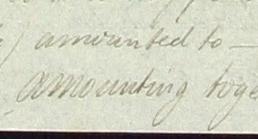 ) amounted to —
amounting toge